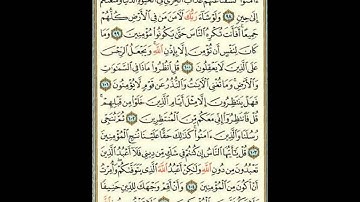 ءَامَنُوا۟ كَشَفْنَا عَنْهُمْ عَذَابَ ٱلْخِزْىِ فِى ٱلْحَيَوٰةِ ٱلدُّنْيَا وَمَتَّعْنَٰهُمْ
إِلَىٰ حِينٍ ٩٨ وَلَوْ شَآءَ رَبُّكَ لَـَٔامَنَ مَن فِى ٱلْأَرْضِ كُلُّهُمْ
جَمِيعًا أَفَأَنتَ تُكْرِهُ ٱلنَّاسَ حَتَّىٰ يَكُونُوا۟ مُؤْمِنِينَ ٩٩ وَمَا
كَانَ لِنَفْسٍ أَن تُؤْمِنَ إِلَّا بِإِذْنِ ٱللَّهِ وَيَجْعَلُ ٱلرِّجْسَ
عَلَى ٱلَّذِينَ لَا يَعْقِلُونَ ١٠٠ قُلِ ٱنظُرُوا۟ مَاذَا فِى ٱلسَّمَٰوَٰتِ
وَٱلْأَرْضِ وَمَا تُغْنِى ٱلْـَٔايَٰتُ وَٱلنُّذُرُ عَن قَوْمٍ لَّا يُؤْمِنُونَ ١٠١
فَهَلْ يَنتَظِرُونَ إِلَّا مِثْلَ أَيَّامِ ٱلَّذِينَ خَلَوْا۟ مِن قَبْلِهِمْ
قُلْ فَٱنتَظِرُوٓا۟ إِنِّى مَعَكُم مِّنَ ٱلْمُنتَظِرِينَ ١٠٢ ثُمَّ نُنَجِّى
رُسُلَنَا وَٱلَّذِينَ ءَامَنُوا۟ كَذَٰلِكَ حَقًّا عَلَيْنَا نُنجِ ٱلْمُؤْمِنِينَ
١٠٣ قُلْ يَٰٓأَيُّهَا ٱلنَّاسُ إِن كُنتُمْ فِى شَكٍّ مِّن دِينِى فَلَآ أَعْبُدُ ٱلَّذِينَ
تَعْبُدُونَ مِن دُونِ ٱللَّهِ وَلَٰكِنْ أَعْبُدُ ٱللَّهَ ٱلَّذِى يَتَوَفَّىٰكُمْ وَأُمِرْتُ
أَنْ أَكُونَ مِنَ ٱلْمُؤْمِنِينَ ١٠٤ وَأَنْ أَقِمْ وَجْهَكَ لِلدِّينِ حَنِيفًا